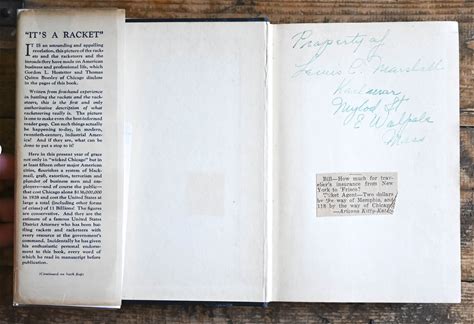 "IT'S A RACKET"
IT IS an astounding and appalling
revelation, this picture of the rack-
ets and the racketeers and the
inroads they have made on American
business and professional life, which
Gordon L. Hostetter and Thomas
Quinn Beesley of Chicago disclose
in the pages of this book:
Written from firsthand experience
in battling the rackets and the rack-
eteers, this is the first and only
authoritative description of what
racketeering really is. The picture
is one to make even the best-informed
reader gasp. Can such things actually
be happening to-day, in modern,
twentieth-century, industrial Amer-
ica? And if they are, what can be
done to put a stop to it?
Here in this present year of grace
not only in "wicked Chicago" but in at
least fifteen other major American
cities, flourishes a system of black-
mail, graft, extortion, terrorism and
plunder of business men and em-
ployees—and of course the public—
that cost Chicago alone $136,000,000
in 1928 and cost the United States at
large a total (including other forms
of crime) of 11 Billions! The figures
are conservative. And they are the
ones of a famous United States
District Attorney who has been bat-
tling rackets and racketeers with
every resource at the government's
command. Incidentally he has given
his enthusiastic personal endorse-
ment to this book, every word of
which he read in manuscript before
publication.
(Continued on back flap)
Property of
Lewis C. Marshall
St
E Walpole
Mass
Bill—How much for trav-
eler's insurance from New
York to 'Frisco?
Ticket Agent—Two dollars
by the way of Memphis, and
$18 by the way of Chicago.
—Arizona Kitty-Kat.